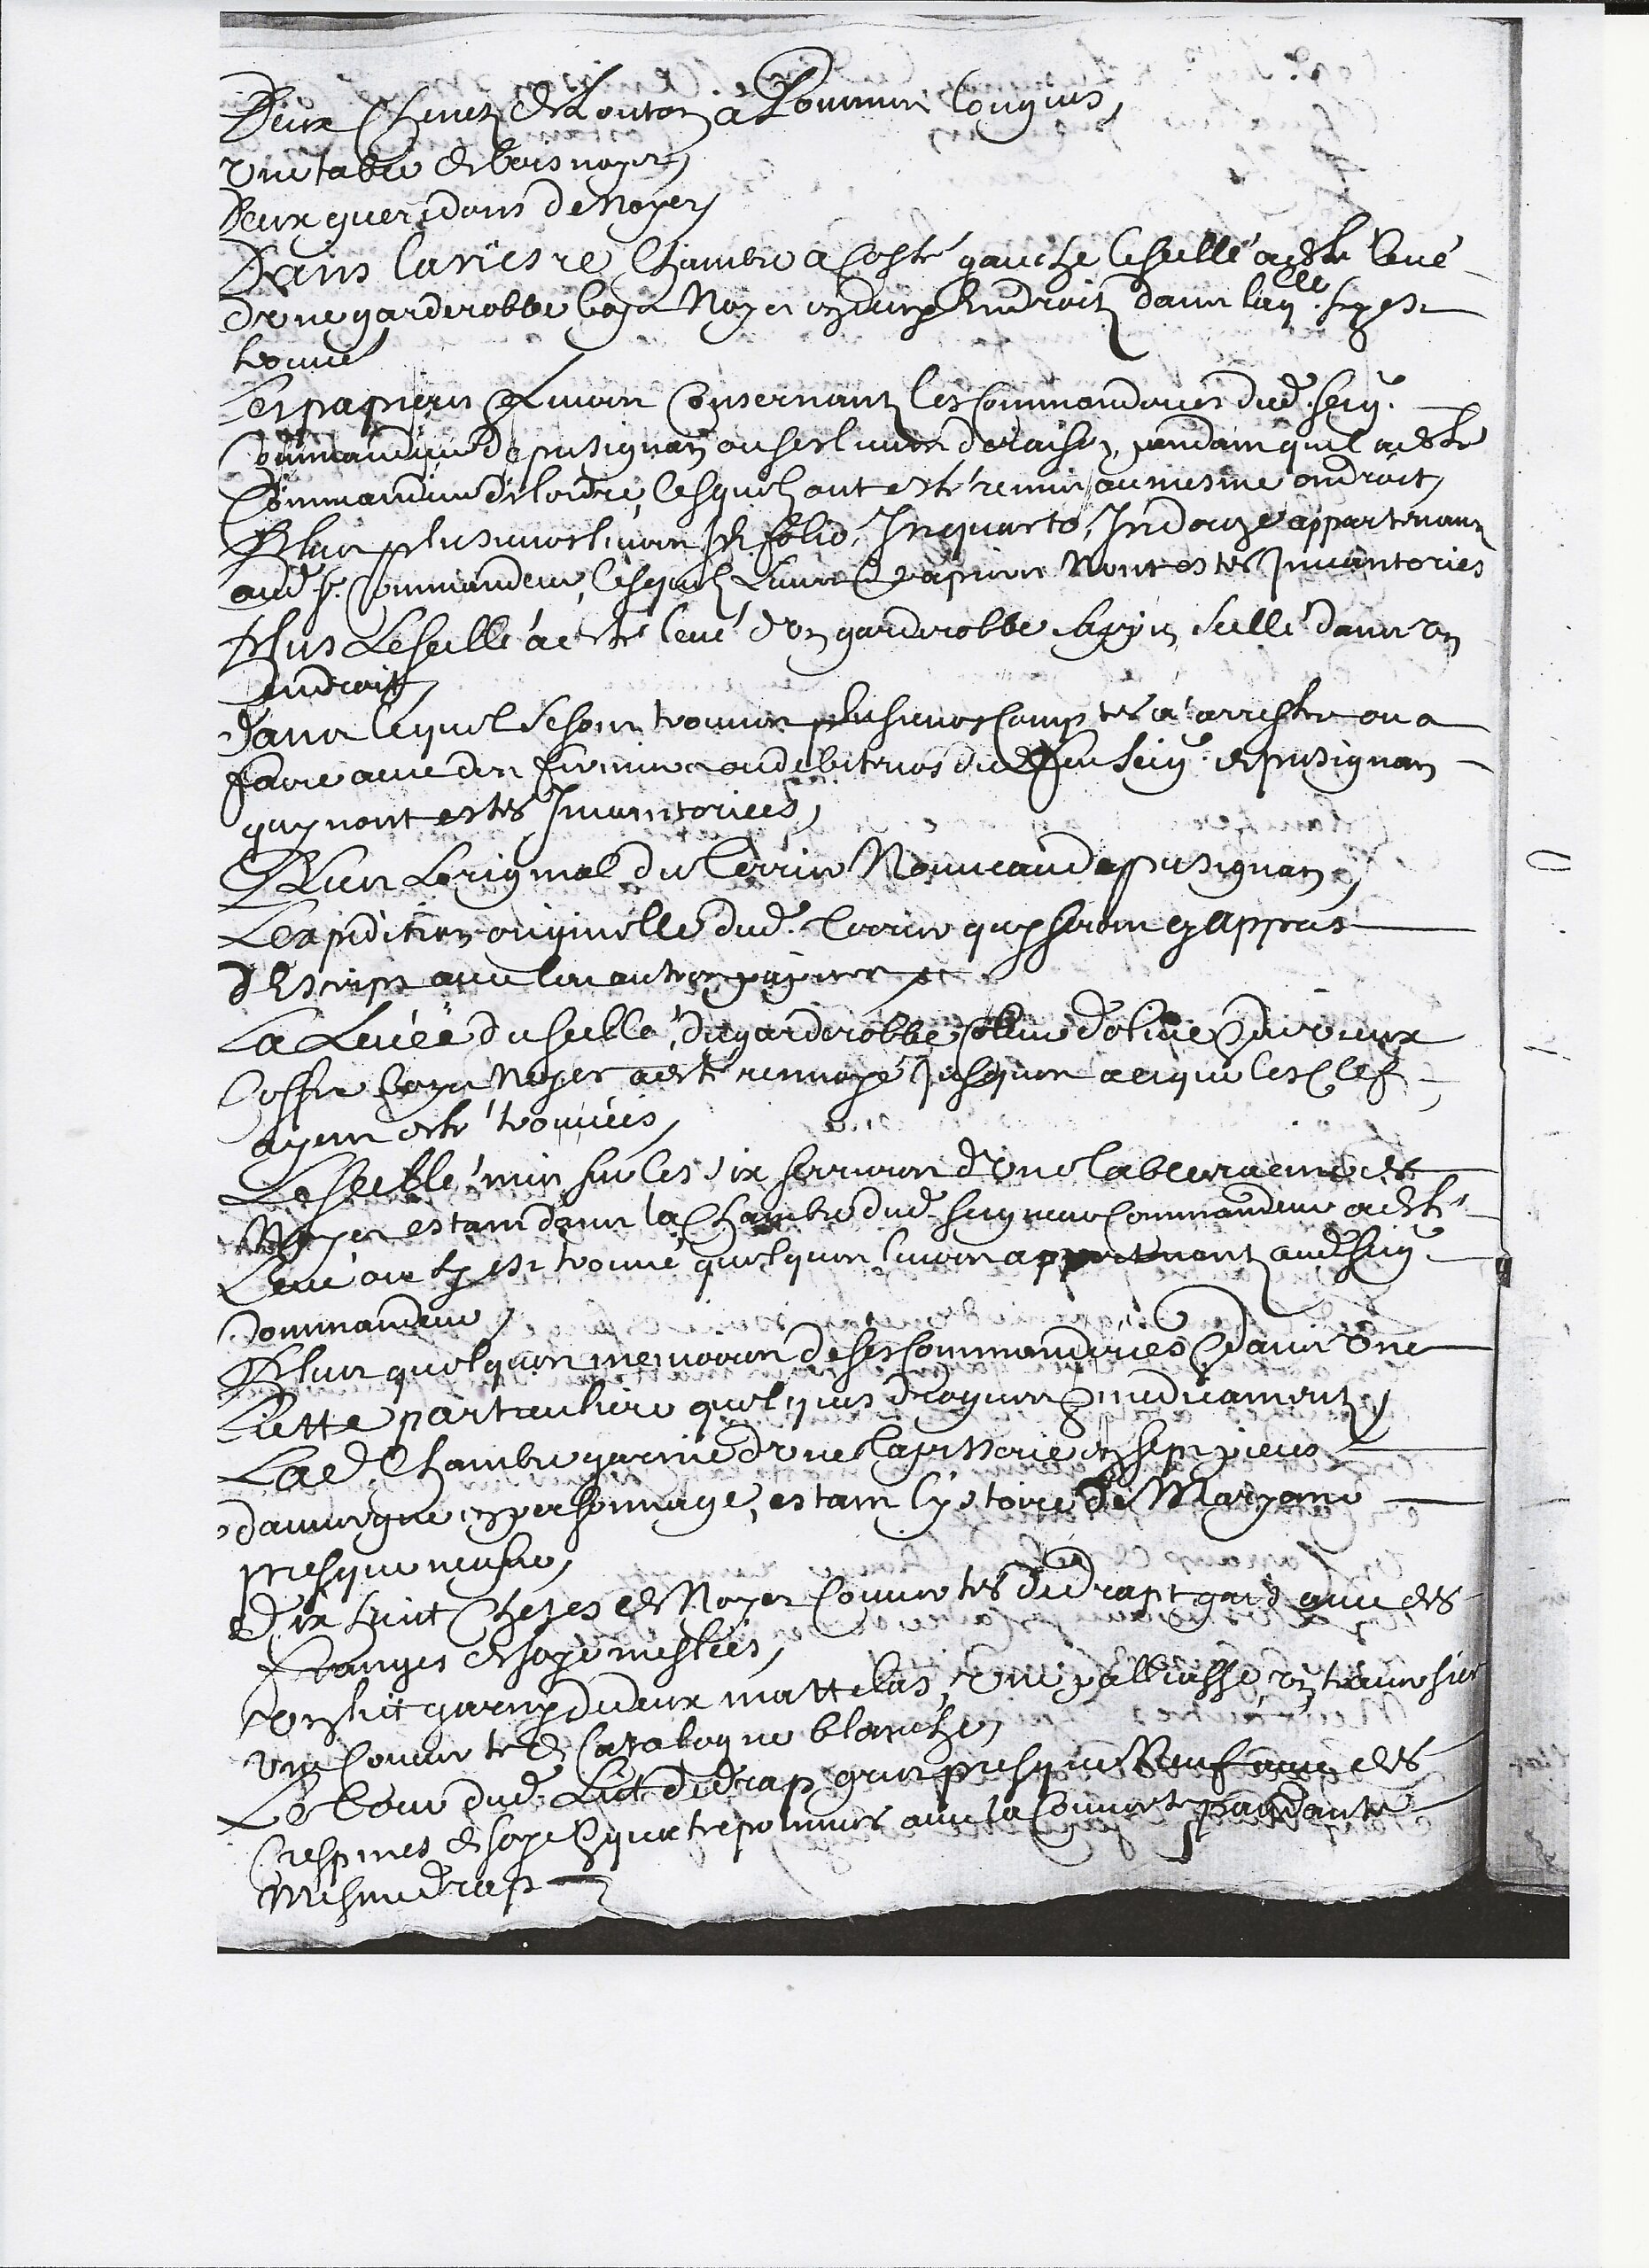 Deux Chenez de Louton à Pommes longues,
Une table de bois noyer,
Deux gueridons de Noyer,
Dans lariesre Chambre a Costé gauche le seellé a esté levé
d'une garderobbe bois Noyer en deux Endroitz dans laqlle. sy est
trouvé
Les papiers & Livres Consernantz les Commanderies dud. seig.
Commandeur de pusignan ou ses livres de raison, pendant quil a esté
Commandeur de lordre, lesquelz ont esté remis au mesme endroit,
Plus plusieurs livres In folio, Inquarto, Indouze appartenantz
aud. sr. Commandeur, lesquelz Livres & papiers Nont estés Inventories
Plus Le seellé a esté levé d'un garderobbe sappin seellé dans un
Endroit,
dans lequel se sont trouvés plusieurs Comptes a arrester ou a
faire avec des fermiers ou debiteurs dud. feu seig. de pusignan
quy nont estés Inventoriees,
Plus Loriginal du Terrier Nouveau de pusignan,
Lexpedition originelle dud. Terrier quy seront cy appres
d'Escripts avec les autres papiers
La Levée du seellé, du garderobbe Couleur d'olive & du vieux
Coffre boys Noyer a esté renvoyé Jusques a ce que les Clefs
ayent esté trouvées,
Le seellé mis sur les six serrures d'une table racine de
Noyer estant dans la Chambre dud. seigneur Commandeur a esté
Levé ou sy est trouvé quelques livres appartenantz aud. seig.
Commandeur,
Plus quelques memoires de ses Commanderies & dans Une
Liette particuliere quelques drogues & medicaments,
Lad. Chambre garnie d'une Tapisserie en sept pieces
dauvergne en personnage, estant lystoire de Maryane
presque neufve,
Dix huict Chezes de Noyer Couvertes de drapt gris avec des
franges de soye meslées,
Un Lict garny de deux mattelas, Une palliasse, un traversier
Une Couverte de Catalogne blanche,
Le Tour dud. Lict de drap gris presque Neuf avec des
Crespines de soye & quatre pommes avec la Couverte pandante
mesme drap